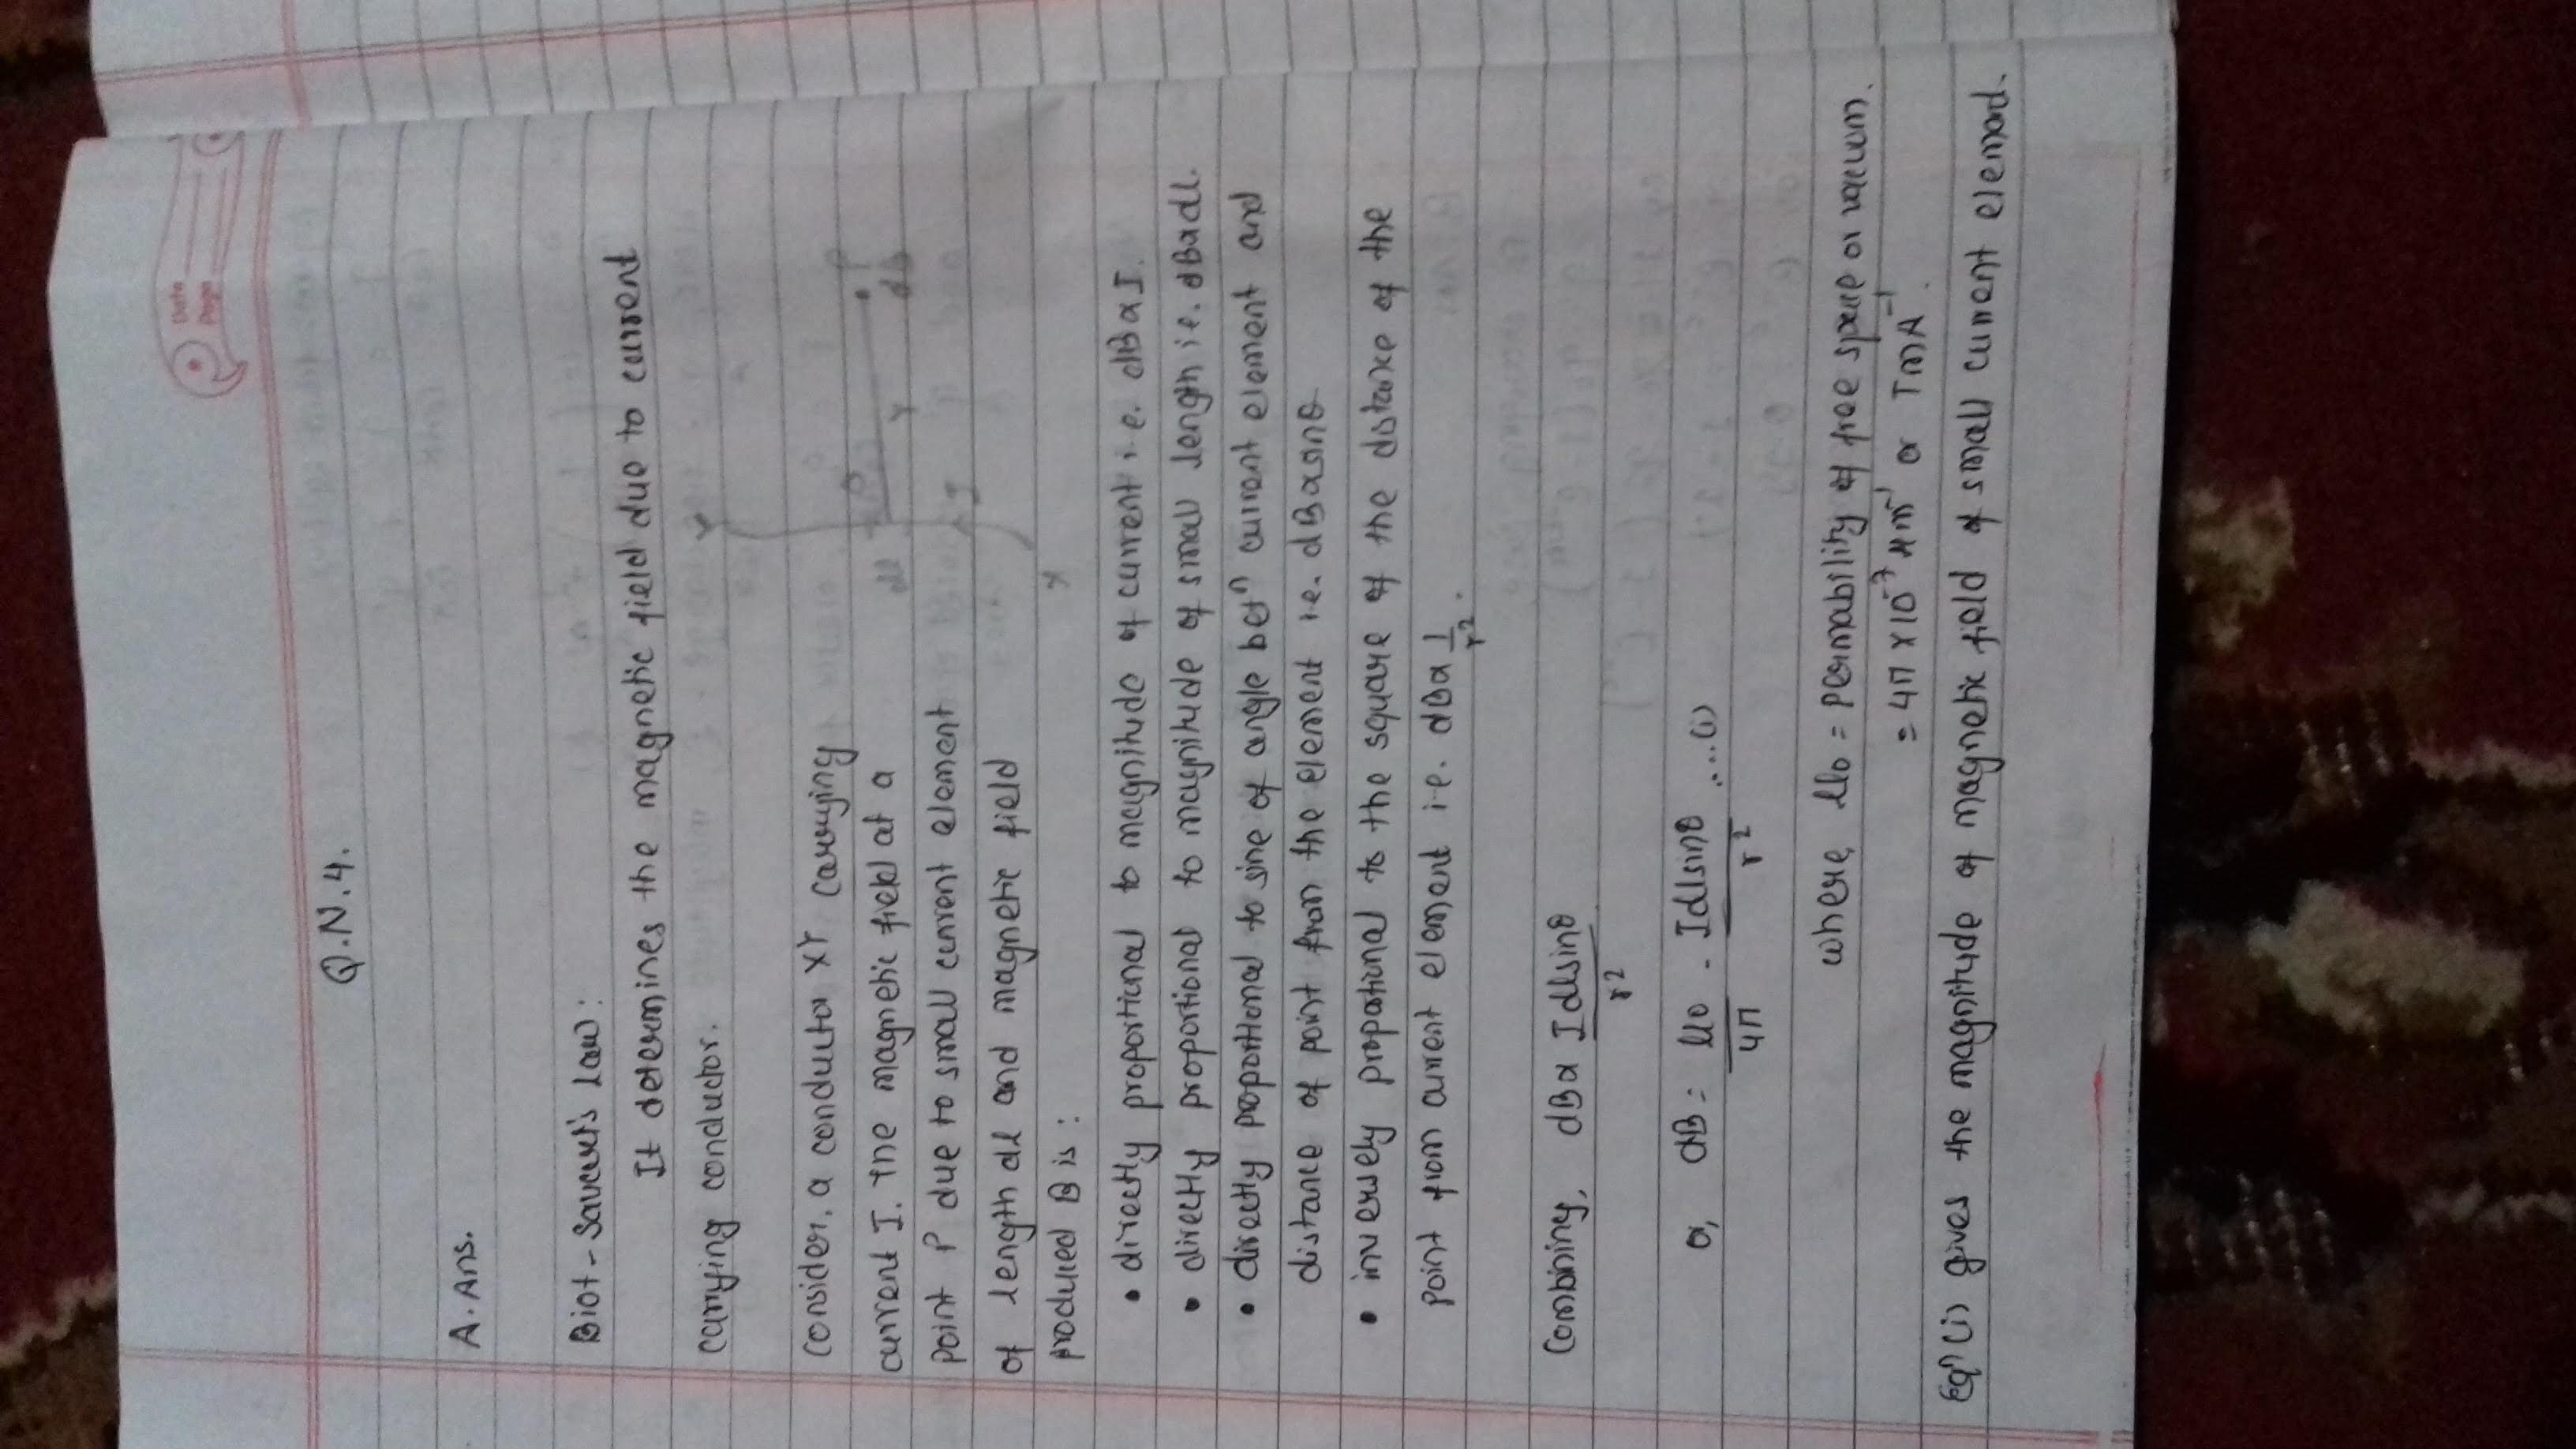 Date
Page
Q.N.4.
A. Ans.
Biot-Savart's Law:
It determines the magnetic field due to current
carrying conductor.
Y
Consider, a conductor XY carrying
current I. The magnetic field at a
point P due to small current element
of length dl and magnetic field
produced B is:
dl θ r P dB
I
X
• directly proportional to magnitude of current i.e. dB∝I.
• directly proportional to magnitude of small length i.e. dB∝dl.
• directly proportional to sine of angle betⁿ current element and
distance of point from the element i.e. dB∝sinθ
• inversely proportional to the square of the distance of the
point from current element i.e. dB∝ 1/r².
Combining, dB∝ Idlsinθ/r²
or, dB = μ0/4π . Idlsinθ/r² ....(i)
where, μ0 = permability of free space or vaccum.
= 4π×10⁻⁷ Hm⁻¹ or TmA⁻¹.
Eqⁿ (i) gives the magnitude of magnetic field of small current element.